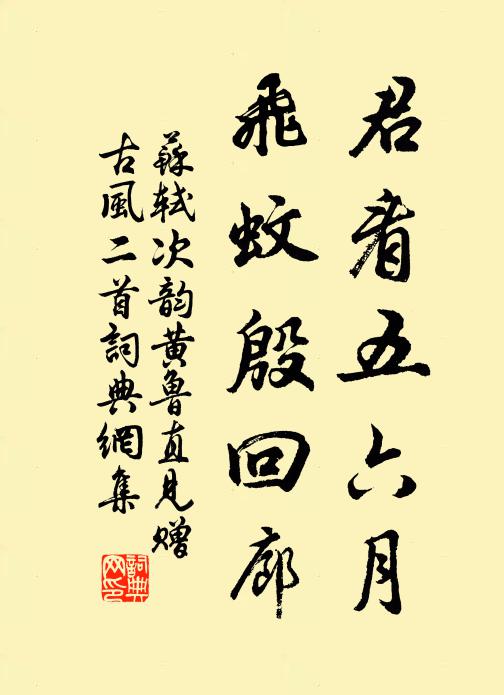 君看五六月
飛蚊殷回廊
蘇軾次韵黄魯直見贈
古風二首詞典網集
詞典網印